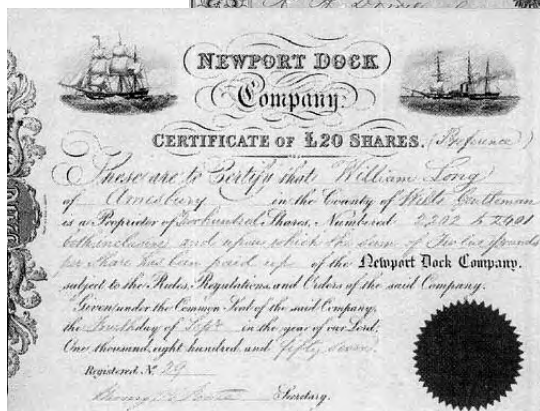 NEWPORT DOCK
Company.
CERTIFICATE OF £20 SHARES. (Preference)
These are to Certify that William Long
of Amesbury in the County of Wilts Gentleman
is a Proprietor of Two hundred Shares, Numbered 2202 to 2401
both inclusive and upon which the sum of Twelve pounds
per share has been paid up of the Newport Dock Company.
subject to the Rules, Regulations, and Orders of the said Company.
Given under the Common Seal of the said Company,
the day of Septr in the year of our Lord,
One thousand, eight hundred and fifty seven.
Registered. No. 29
Secretary.